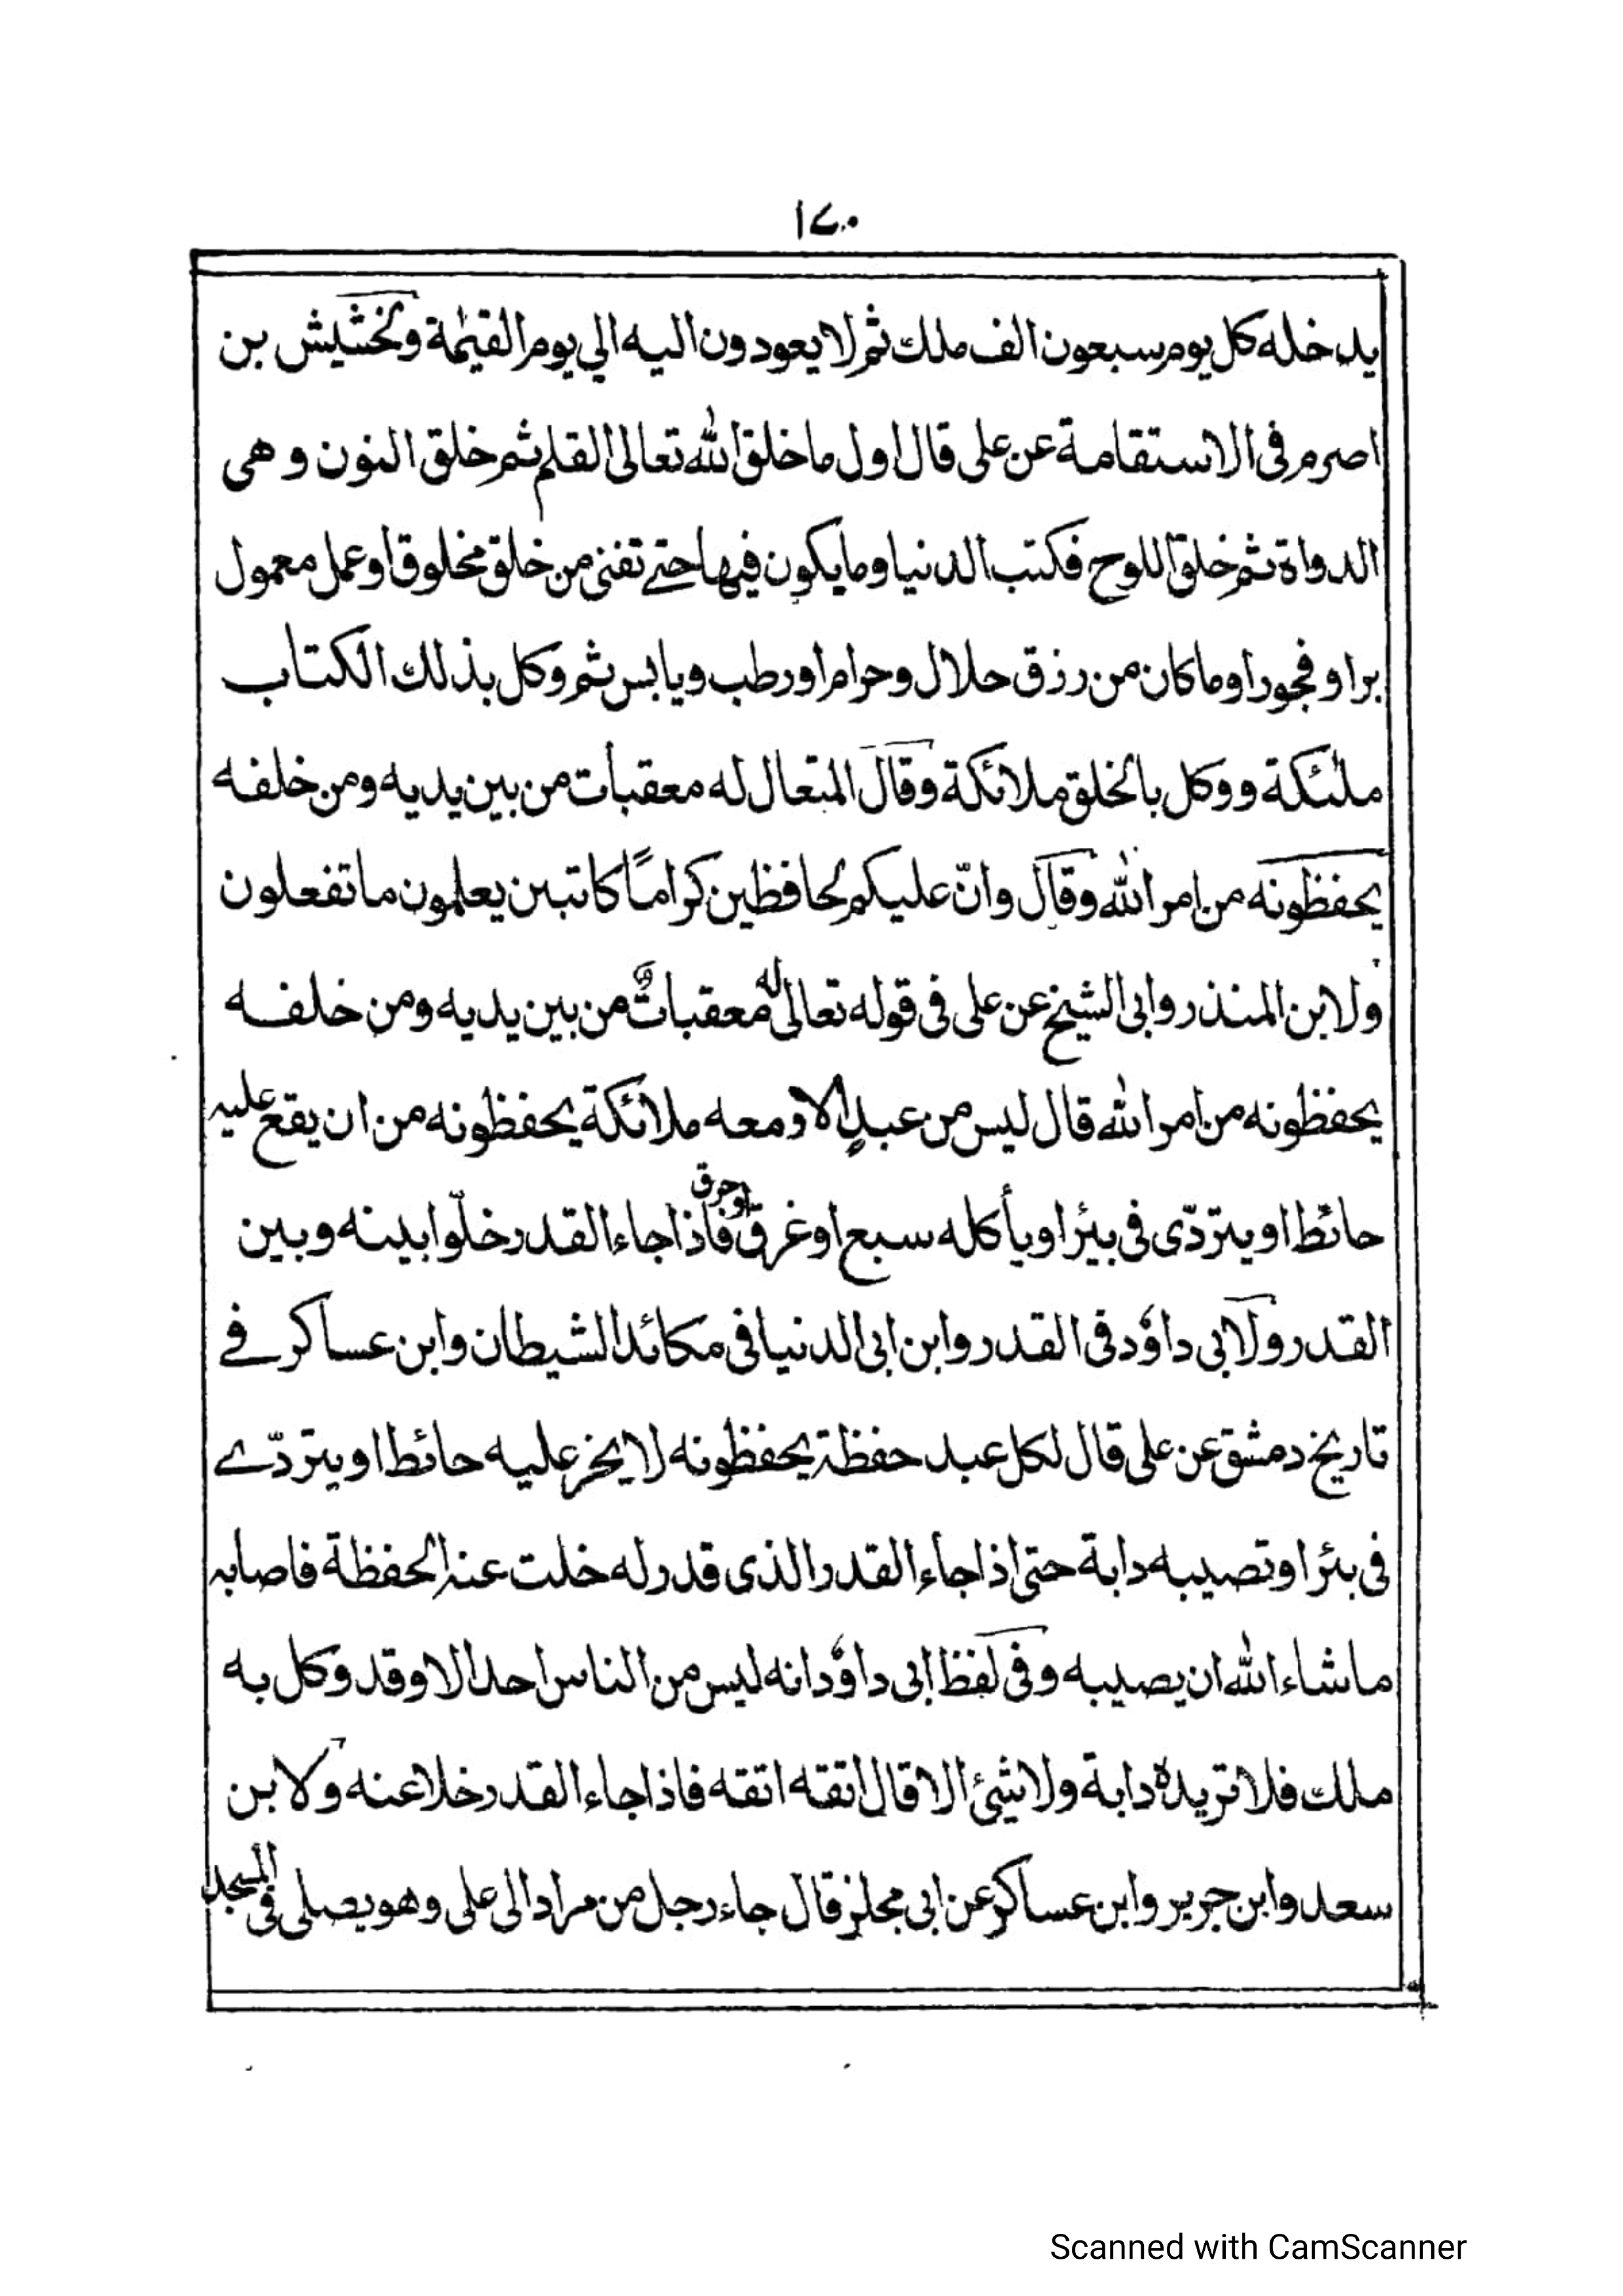 ١٧٠
يدخله كل يوم سبعون الف ملك ثم لا يعودون اليه الي يوم القيٰمة ولخشيش بن
اصرم فى الاستقامة عن على قال اول ما خلق الله تعالى القلم ثم خلق النون وهى
الدواة ثم خلق اللوح فكتب الدنيا وما يكون فيها حتے تفنى من خلق مخلوق او عمل معمول
برا وفجورا وما كان من رزق حلال وحرام او رطب ويابس ثم وكل بذلك الكتاب
ملٰئكة ووكل بالخلق ملائكة وقال المتعال له معقبات من بين يديه ومن خلفه
يحفظونه من امر الله وقال وانّ عليكم لحافظين كرامًا كاتبين يعلمون ما تفعلون
ولابن المنذر وابى الشيخ عن على فى قوله تعالى له معقباتٌ من بين يديه ومن خلفه
يحفظونه من امر الله قال ليس من عبدٍ الا ومعه ملائكة يحفظونه من ان يقع عليہ
حائط او يتردّى فى بيئر او يأكله سبع او غرق او حرق فاذا جاء القدر خلّوا بينه وبين
القدر ولابى داؤد فى القدر وابن ابى الدنيا فى مكائد الشيطان وابن عساكر فے
تاريخ دمشق عن على قال لكل عبد حفظة يحفظونه لا يخر عليه حائط او يتردّے
فى بئر او تصيبه دابة حتى اذا جاء القدر الذى قدر له خلت عنہ الحفظة فاصابہ
ما شاء الله ان يصيبه وفى لفظ ابى داؤد انه ليس من الناس احد الا وقد وكل به
ملك فلا تريده دابة ولا شئ الا قال اتقه اتقه فاذا جاء القدر خلا عنه ولابن
سعد وابن جرير وابن عساكر عن ابى مجلز قال جاء رجل من مراد الى على وهو يصلى فى المسجد
Scanned with CamScanner